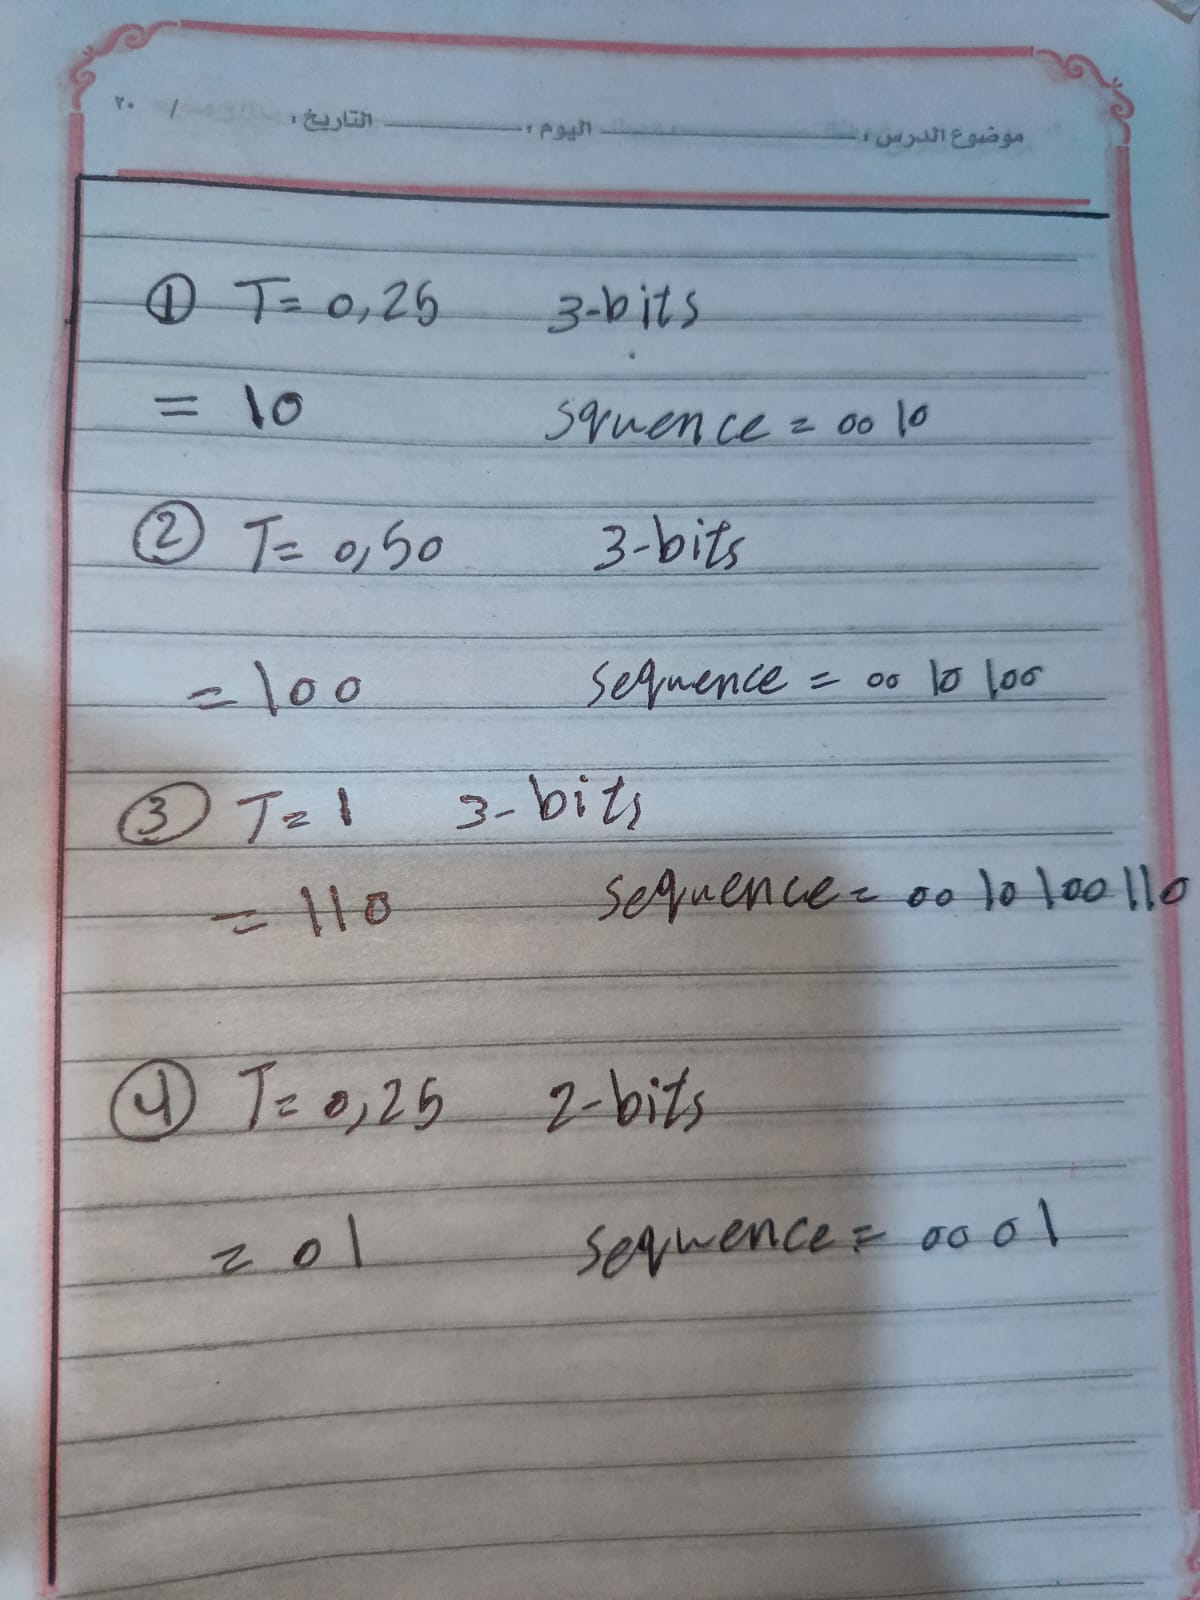 موضوع الدرس : اليوم : التاريخ : / ٢٠
① T= 0,25 3-bits
= 10 squence = 00 10
② T= 0,50 3-bits
= 100 sequence = 00 10 100
③ T=1 3-bits
= 110 sequence = 00 10 100 110
④ T= 0,25 2-bits
= 01 sequence = 00 01